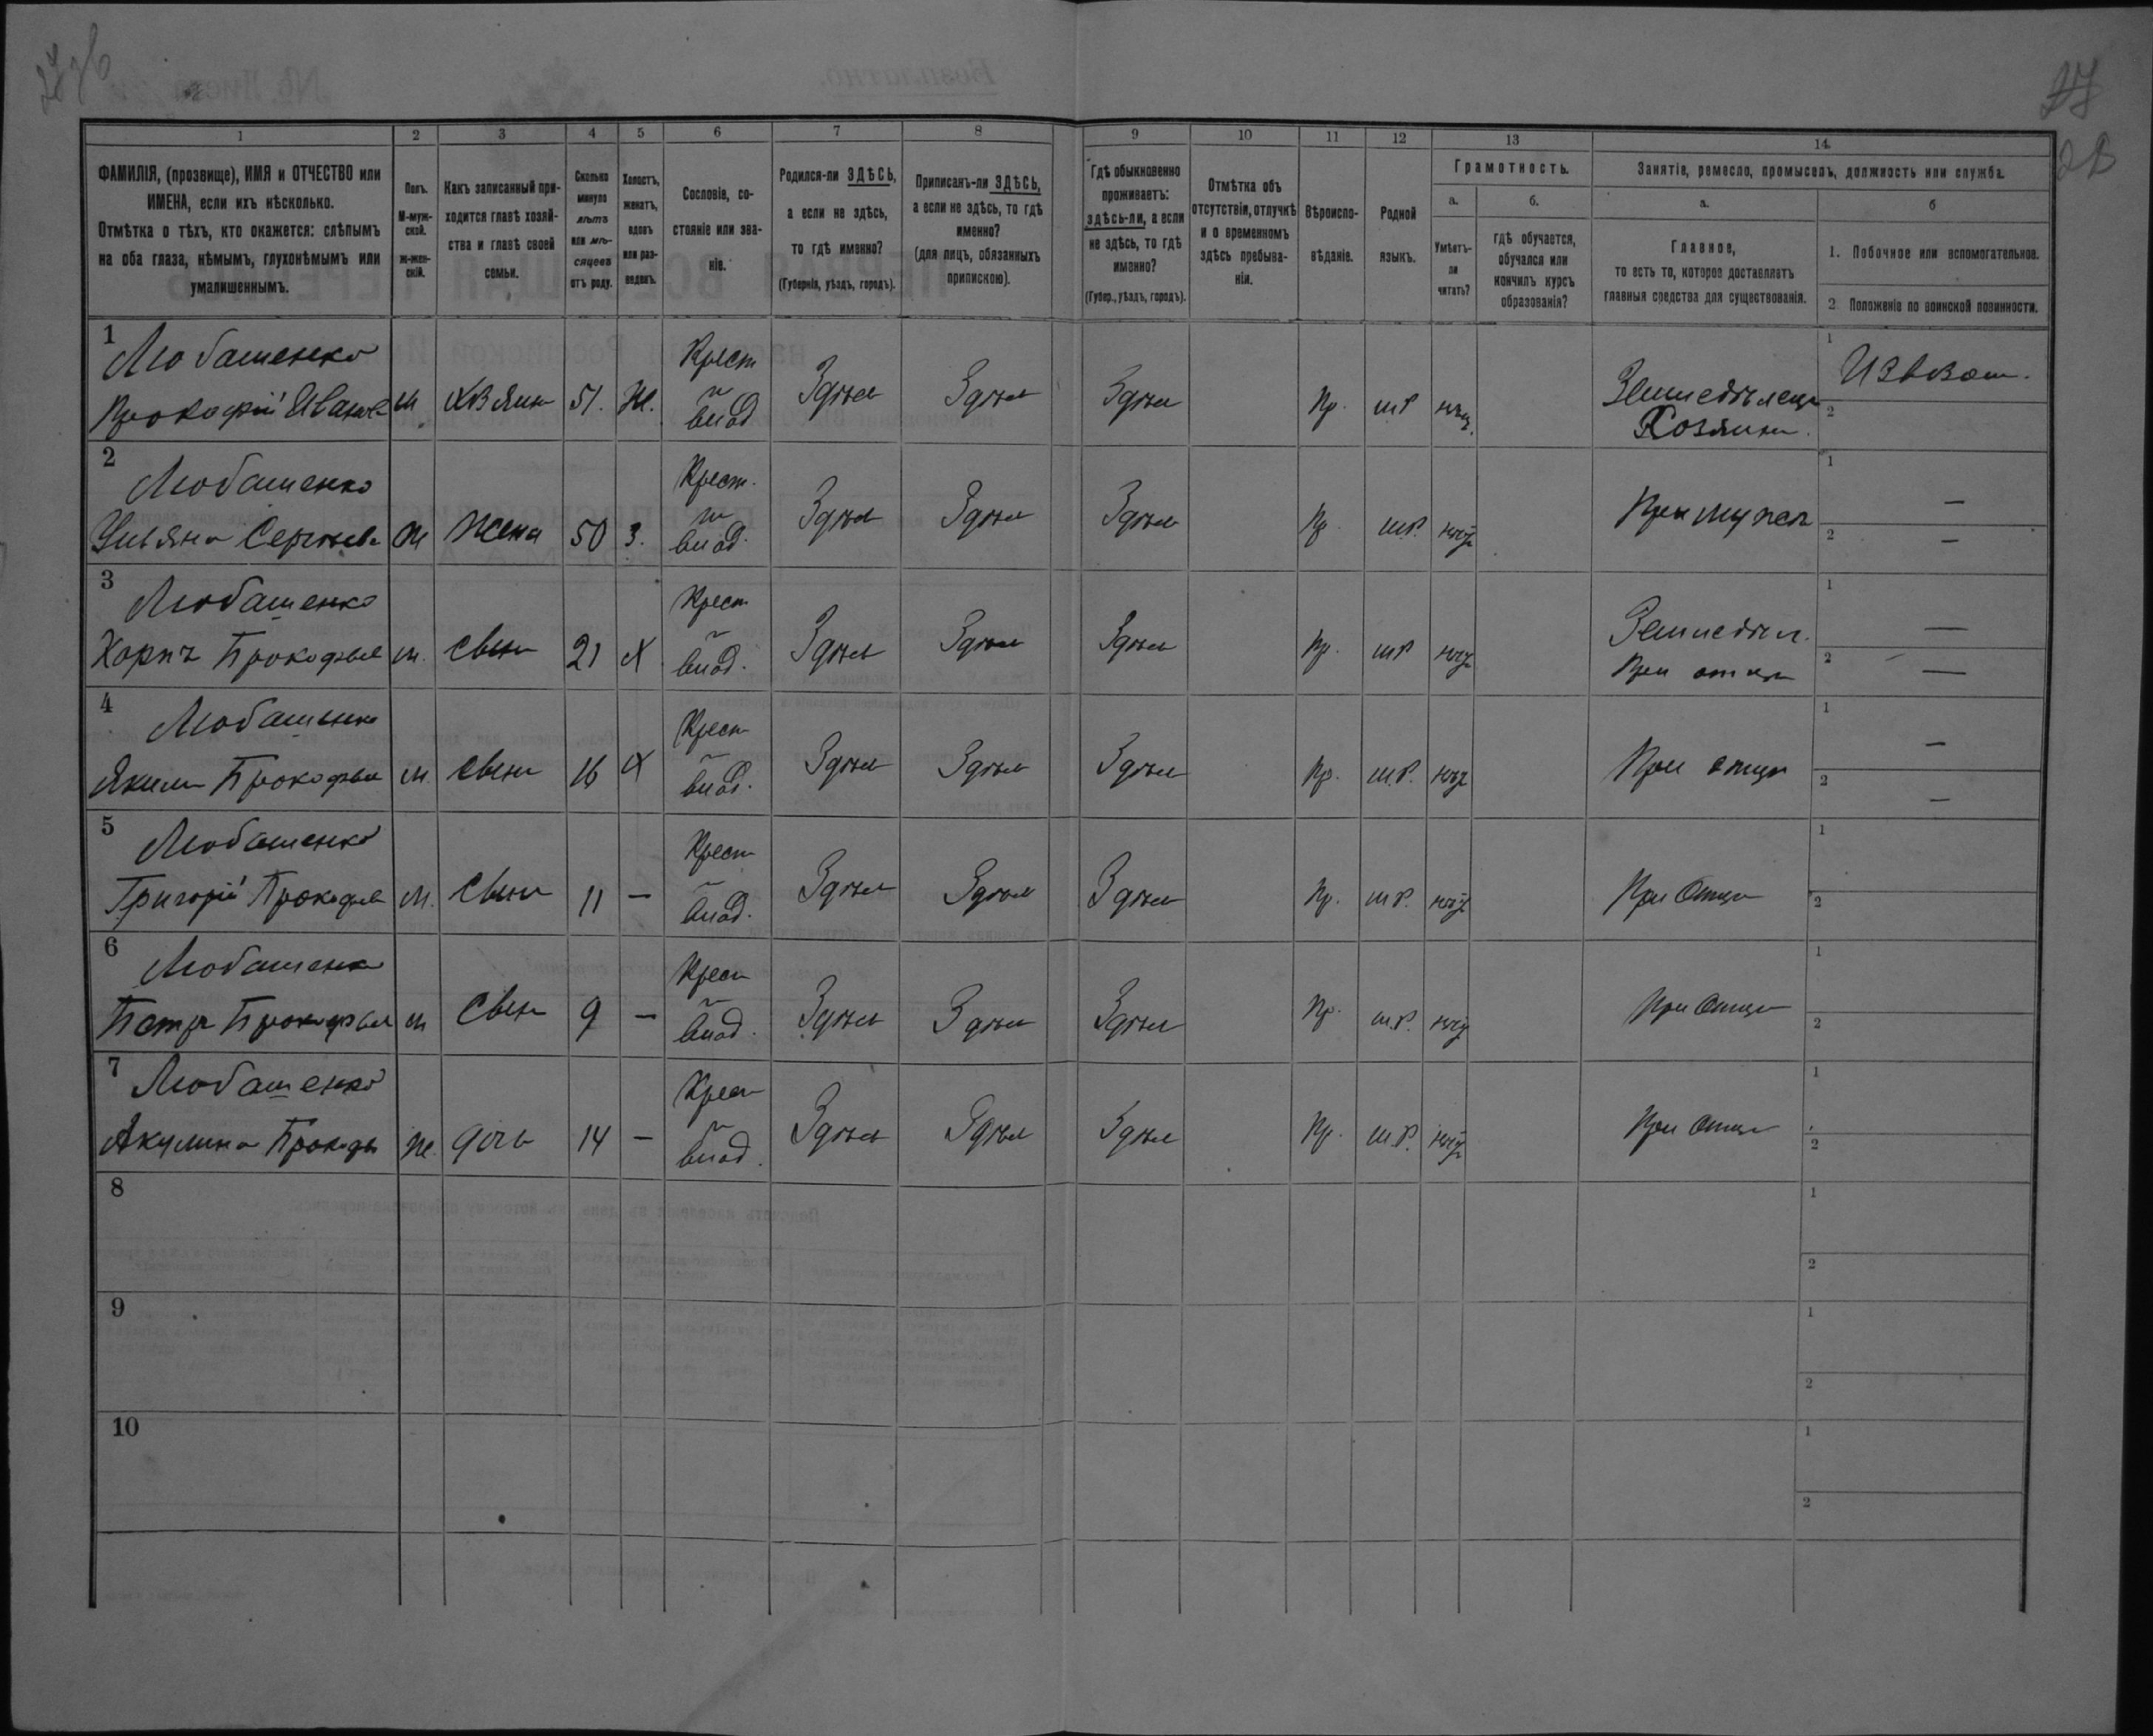 27
28
1
2
3
4
5
6
7
8
9
10
11
12
13
14.
ФАМИЛІЯ, (прозвище), ИМЯ и ОТЧЕСТВО или
ИМЕНА, если ихъ нѣсколько.
Отмѣтка о тѣхъ, кто окажется: слѣпымъ
на оба глаза, нѣмымъ, глухонѣмымъ или
умалишеннымъ.
Полъ.
М-муж-
ской.
ж-жен-
скій.
Какъ записанный при-
ходится главѣ хозяй-
ства и главѣ своей
семьи.
Сколько
минуло
лѣтъ
или мѣ-
сяцевъ
отъ роду.
Холостъ,
женатъ,
вдовъ
или раз-
веденъ.
Сословіе, со-
стояніе или зва-
ніе.
Родился-ли ЗДѢСЬ,
а если не здѣсь,
то гдѣ именно?
(Губернія, уѣздъ, городъ).
Приписанъ-ли ЗДѢСЬ,
а если не здѣсь, то гдѣ
именно?
(для лицъ, обязанныхъ
припискою).
Гдѣ обыкновенно
проживаетъ:
здѣсь-ли, а если
не здѣсь, то гдѣ
именно?
(Губер., уѣздъ, городъ).
Отмѣтка объ
отсутствіи, отлучкѣ
и о временномъ
здѣсь пребыва-
ніи.
Вѣроиспо-
вѣданіе.
Родной
языкъ.
Грамотность.
а.
Умѣетъ-
ли
читать?
б.
гдѣ обучается,
обучался или
кончилъ курсъ
образованія?
Занятіе, ремесло, промыселъ, должность или служба.
а.
Главное,
то есть то, которое доставляетъ
главныя средства для существованія.
б
1. Побочное или вспомогательное.
2 Положеніе по воинской повинности.
1
Любашенко Крест 1 Извоз.
Прокофій Иванов м хзяин 51. Ж. и влад Здѣсь Здѣсь Здѣсь Пр. м.р. нѣт. Земледѣлецъ
Хозяинъ. 2
2
Любашенко Крест. 1 —
Ульяна Сергѣева ж жена 50 З. и влад. Здѣсь Здѣсь Здѣсь Пр. м.р. нѣт При мужѣ 2 —
3
Любашенко Крест 1 —
Карпъ Прокофьев м. сынъ 21 Х и влад. Здѣсь Здѣсь Здѣсь Пр. м.р нѣт Земледѣл.
При отцѣ 2 —
4
Любашенко Крест 1 —
Яким Прокофьев м. сынъ 16 Х и влад. Здѣсь Здѣсь Здѣсь Пр. м.р. нѣт При отцѣ 2 —
5
Любашенко Крест 1
Григорій Прокофьев м. сынъ 11 — и влад. Здѣсь Здѣсь Здѣсь Пр. м.р. нѣт При Отцѣ 2
6
Любашенко Крест 1
Петръ Прокофьев м сынъ 9 — и влад. Здѣсь Здѣсь Здѣсь Пр. м.р. нѣт При Отцѣ 2
7
Любашенко Крест 1
Акулина Прокофь ж. дочь 14 — и влад. Здѣсь Здѣсь Здѣсь Пр. м.р. нѣт При Отцѣ 2
8
1
2
9
1
2
10
1
2